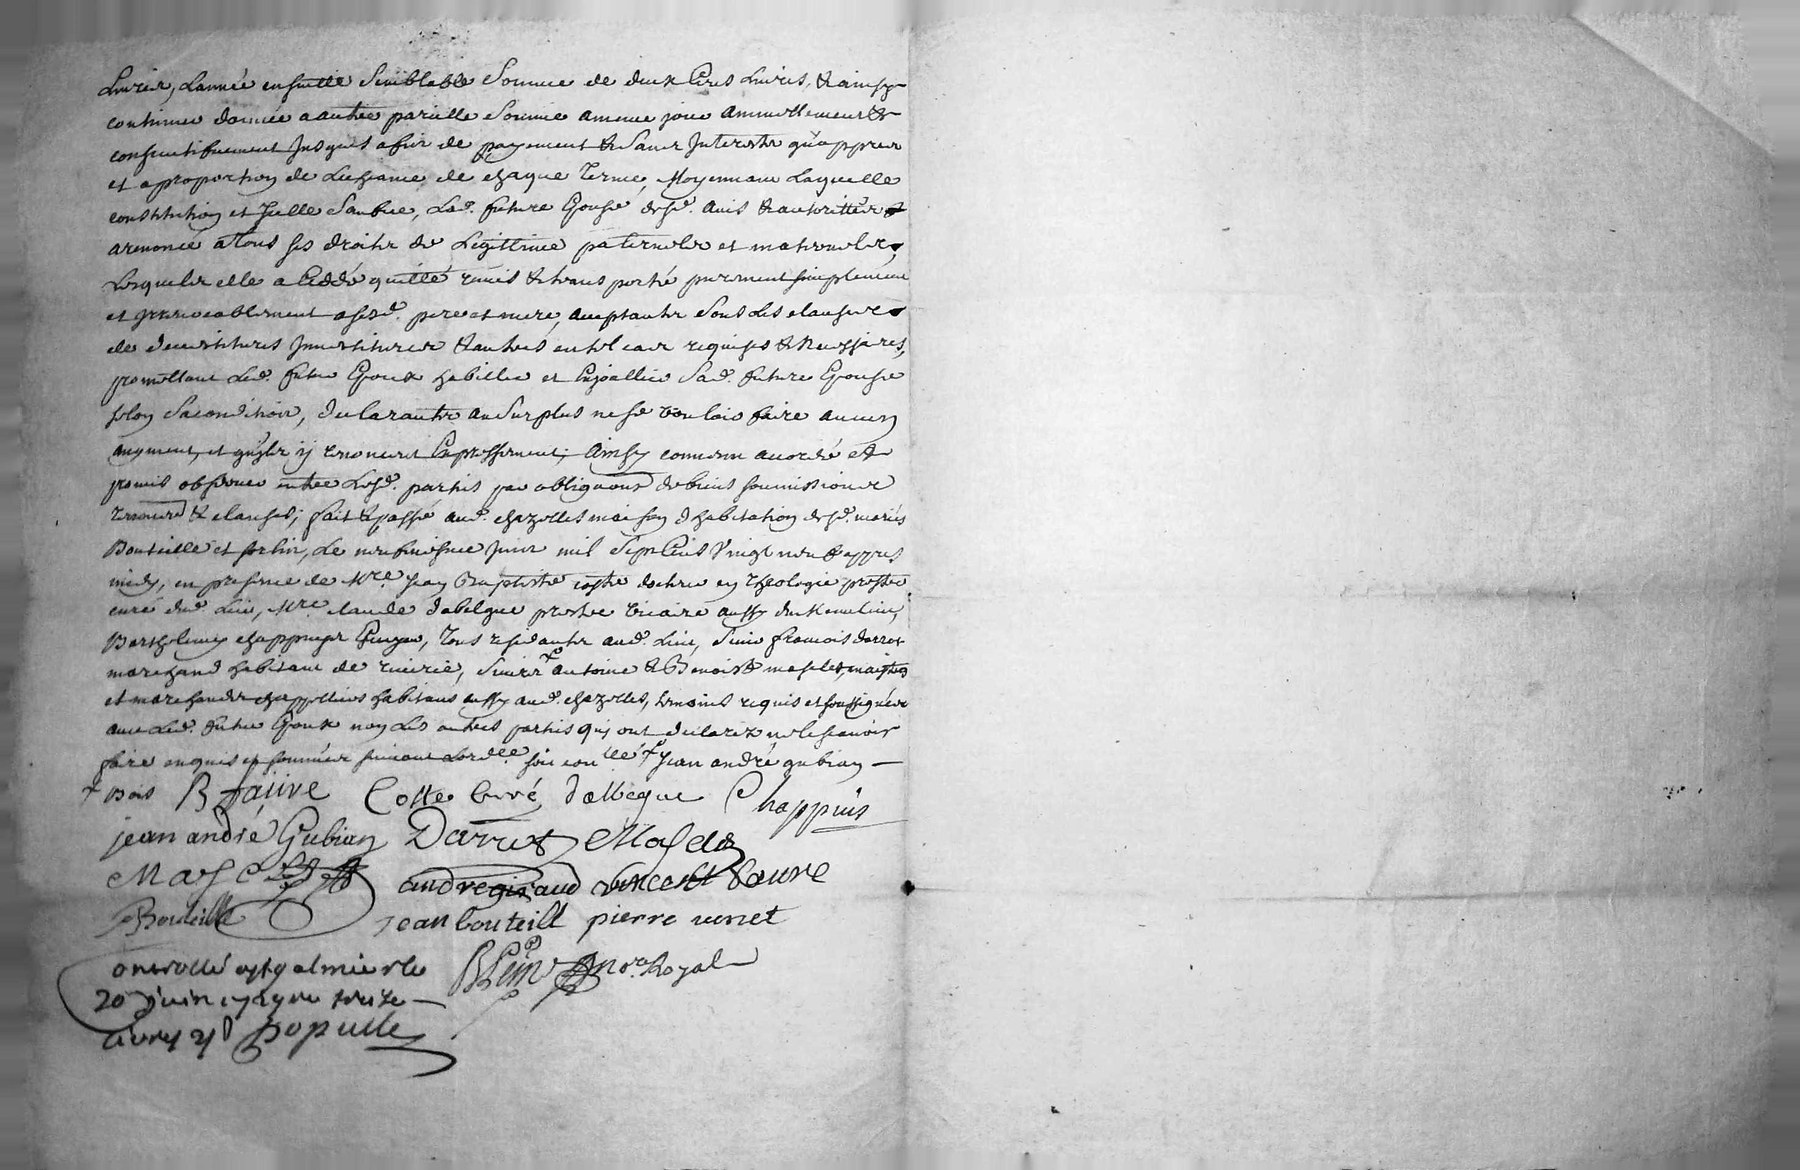 Livres, Lannée ensuitte Semblable Somme de deux Cens Livres, & ainsy
continuer dannée a autre pareille Somme a meme jour annuellement &
consecutifvement Jusques a fin de payement & Sans Interets qu'appres
et a proportion de Lecheance de chaque terme, Moyennant Laquelle
constitution et Icelle Saubue, Lad. future Epouse desd. avis & autorittés a
arenoncé a tous ses droits de Legittime paternels et maternels,
Lesquels elle a Ceddé quitté remis & transporté purement simplement
et irrevocablement a sesd. pere et mere, acceptants Sous Les clauses
de devestitures Investitures & autres en tel cas requises & Necessaires,
promettant Led. futur Epoux habiller et Enjoallier Sad. future Epouse
selon Sa condition, declarants au Surplus ne se vouloir faire aucun
augment, et qu'ils y renoncent Expressement; Ainsy convenu accordé et
promis observer entre Lesd. parties par obligations de biens soumissions
renoncs. & clauses; fait & passé aud. chazelles maison d'habitation desd. mariés
Bouteille et , Le neufvieme Juin mil Sept Cens Vingt neuf appres
midy, en presence de Mre. Jean Baptiste coste docteur en theologie prestre
curé dud. Lieu, Mre. claude dalbegue prestre vicaire aussy dud. même Lieu,
Barthelemy chappuys , tous residants aud. Lieu, Sieur francois darrot
marchand habitant de , Sieurs + antoine & Benoist maselet, maistres
et marchands chappelliers habitans aussy aud. chazelles, temoins requis et soussignés
avec Led. futur Epoux non Les autres parties qui ont declarez ne le sçavoir
faire enquis et sommés suivant Lordce. soit con llé + & Jean andré gubian —
+ B faure Coste Curé dalbegue Chappuis
jean andré Gubian Darrot Maselet
Maselet andregiraud vincent faure
Bouteille jean bouteille pierre venet
ontrollé a st galmier le no.re Royal
20 juin 1729 recu treize
livres Populle